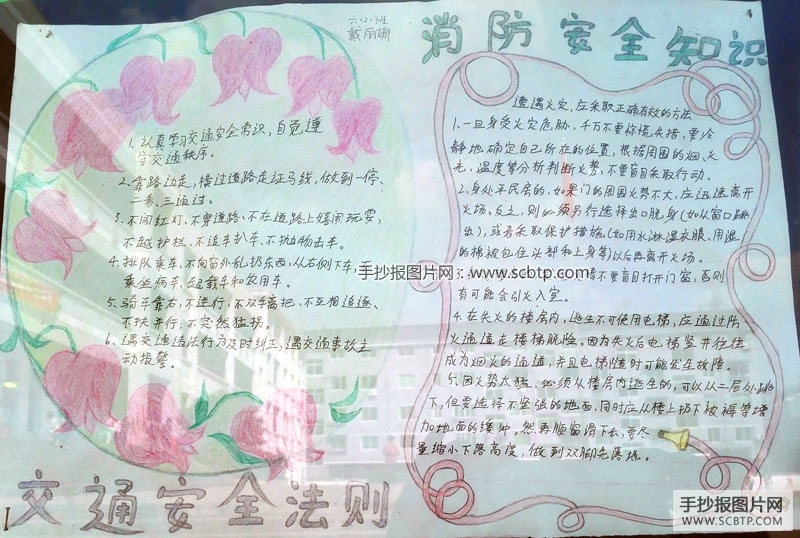 六(2)班
戴丽娜
消防安全知识
1、认真学习交通安全常识,自觉遵
守交通秩序。
2、靠路边走,横过道路走证马线,做到一停、
二看、三通过。
3、不闯红灯、不穿道路、不在道路上嬉闹玩耍,
不越护栏、不追车扒车、不抛物击车。
4、排队乘车、不向窗外乱扔东西,从右侧下车,
乘坐病车、超载车和农用车。
5、骑车靠右,不逆行、不双手离把、不互相追逐、
不扶并行,不突然猛拐。
6、遇交通违法行为及时纠正,遇交通事故主
动报警。
交通安全法则
遭遇火灾,应采取正确有效的方法
1、一旦身受火灾危胁,千万不要惊慌失措,要冷
静地确定自己所在的位置,根据周围的烟、火
光、温度等分析判断火势,不要盲目采取行动。
2、身处平民房的,如果门的周围火势不大,应迅速离开
火场。反之,则必须另行选择出口脱身(如从窗口跳
出),或者采取保护措施(如用水淋湿衣服、用湿
的棉被包住头部和上身等)以后再离开火场。
情不要盲目打开门窗,否则
有可能会引火入室。
4、在失火的楼层内,逃生不可使用电梯,应通过防
火通道走楼梯脱险。因为失火后电梯竖井往往
成为烟火的通道,并且电梯随时可能发生故障。
5、因火势太猛,必须从楼层内逃生的,可以从二层处跳
下,但要选择不坚强的地面,同时应从楼上扔下被褥等增
加地面的缓冲,然再顺窗滑下去,要尽
量缩小下落高度,做到双脚先落地。
手抄报图片网:www.scbtp.com
手抄报图片网
WWW.SCBTP.COM